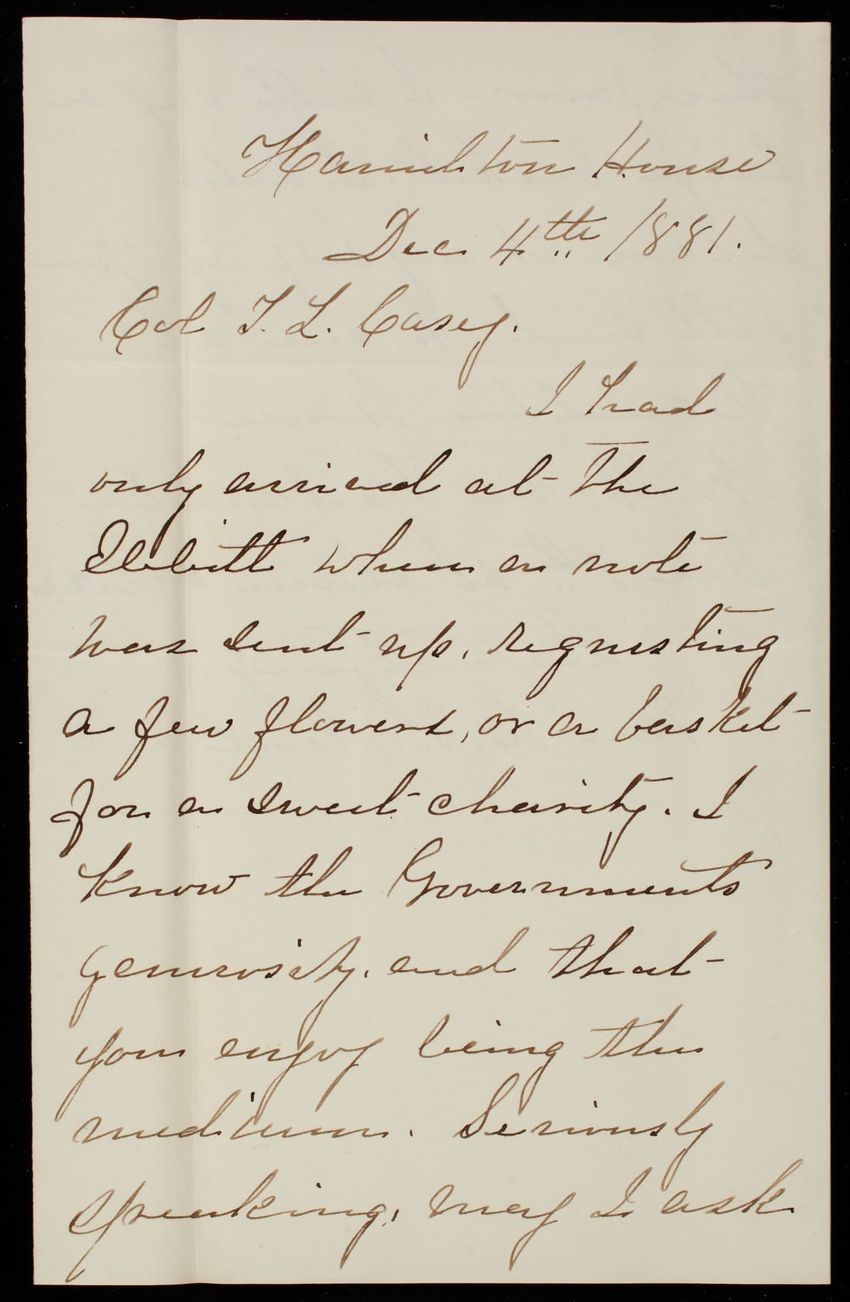 Hamilton House
Dec 4th 1881.
Col T. L. Casey.
I had
only arrived at the
Ebbitt when a note
was sent up, requesting
a few flowers, or a basket
for a sweet charity. I
know the Governments
generosity, and that
you enjoy being the
medium. Seriously
speaking, may I ask